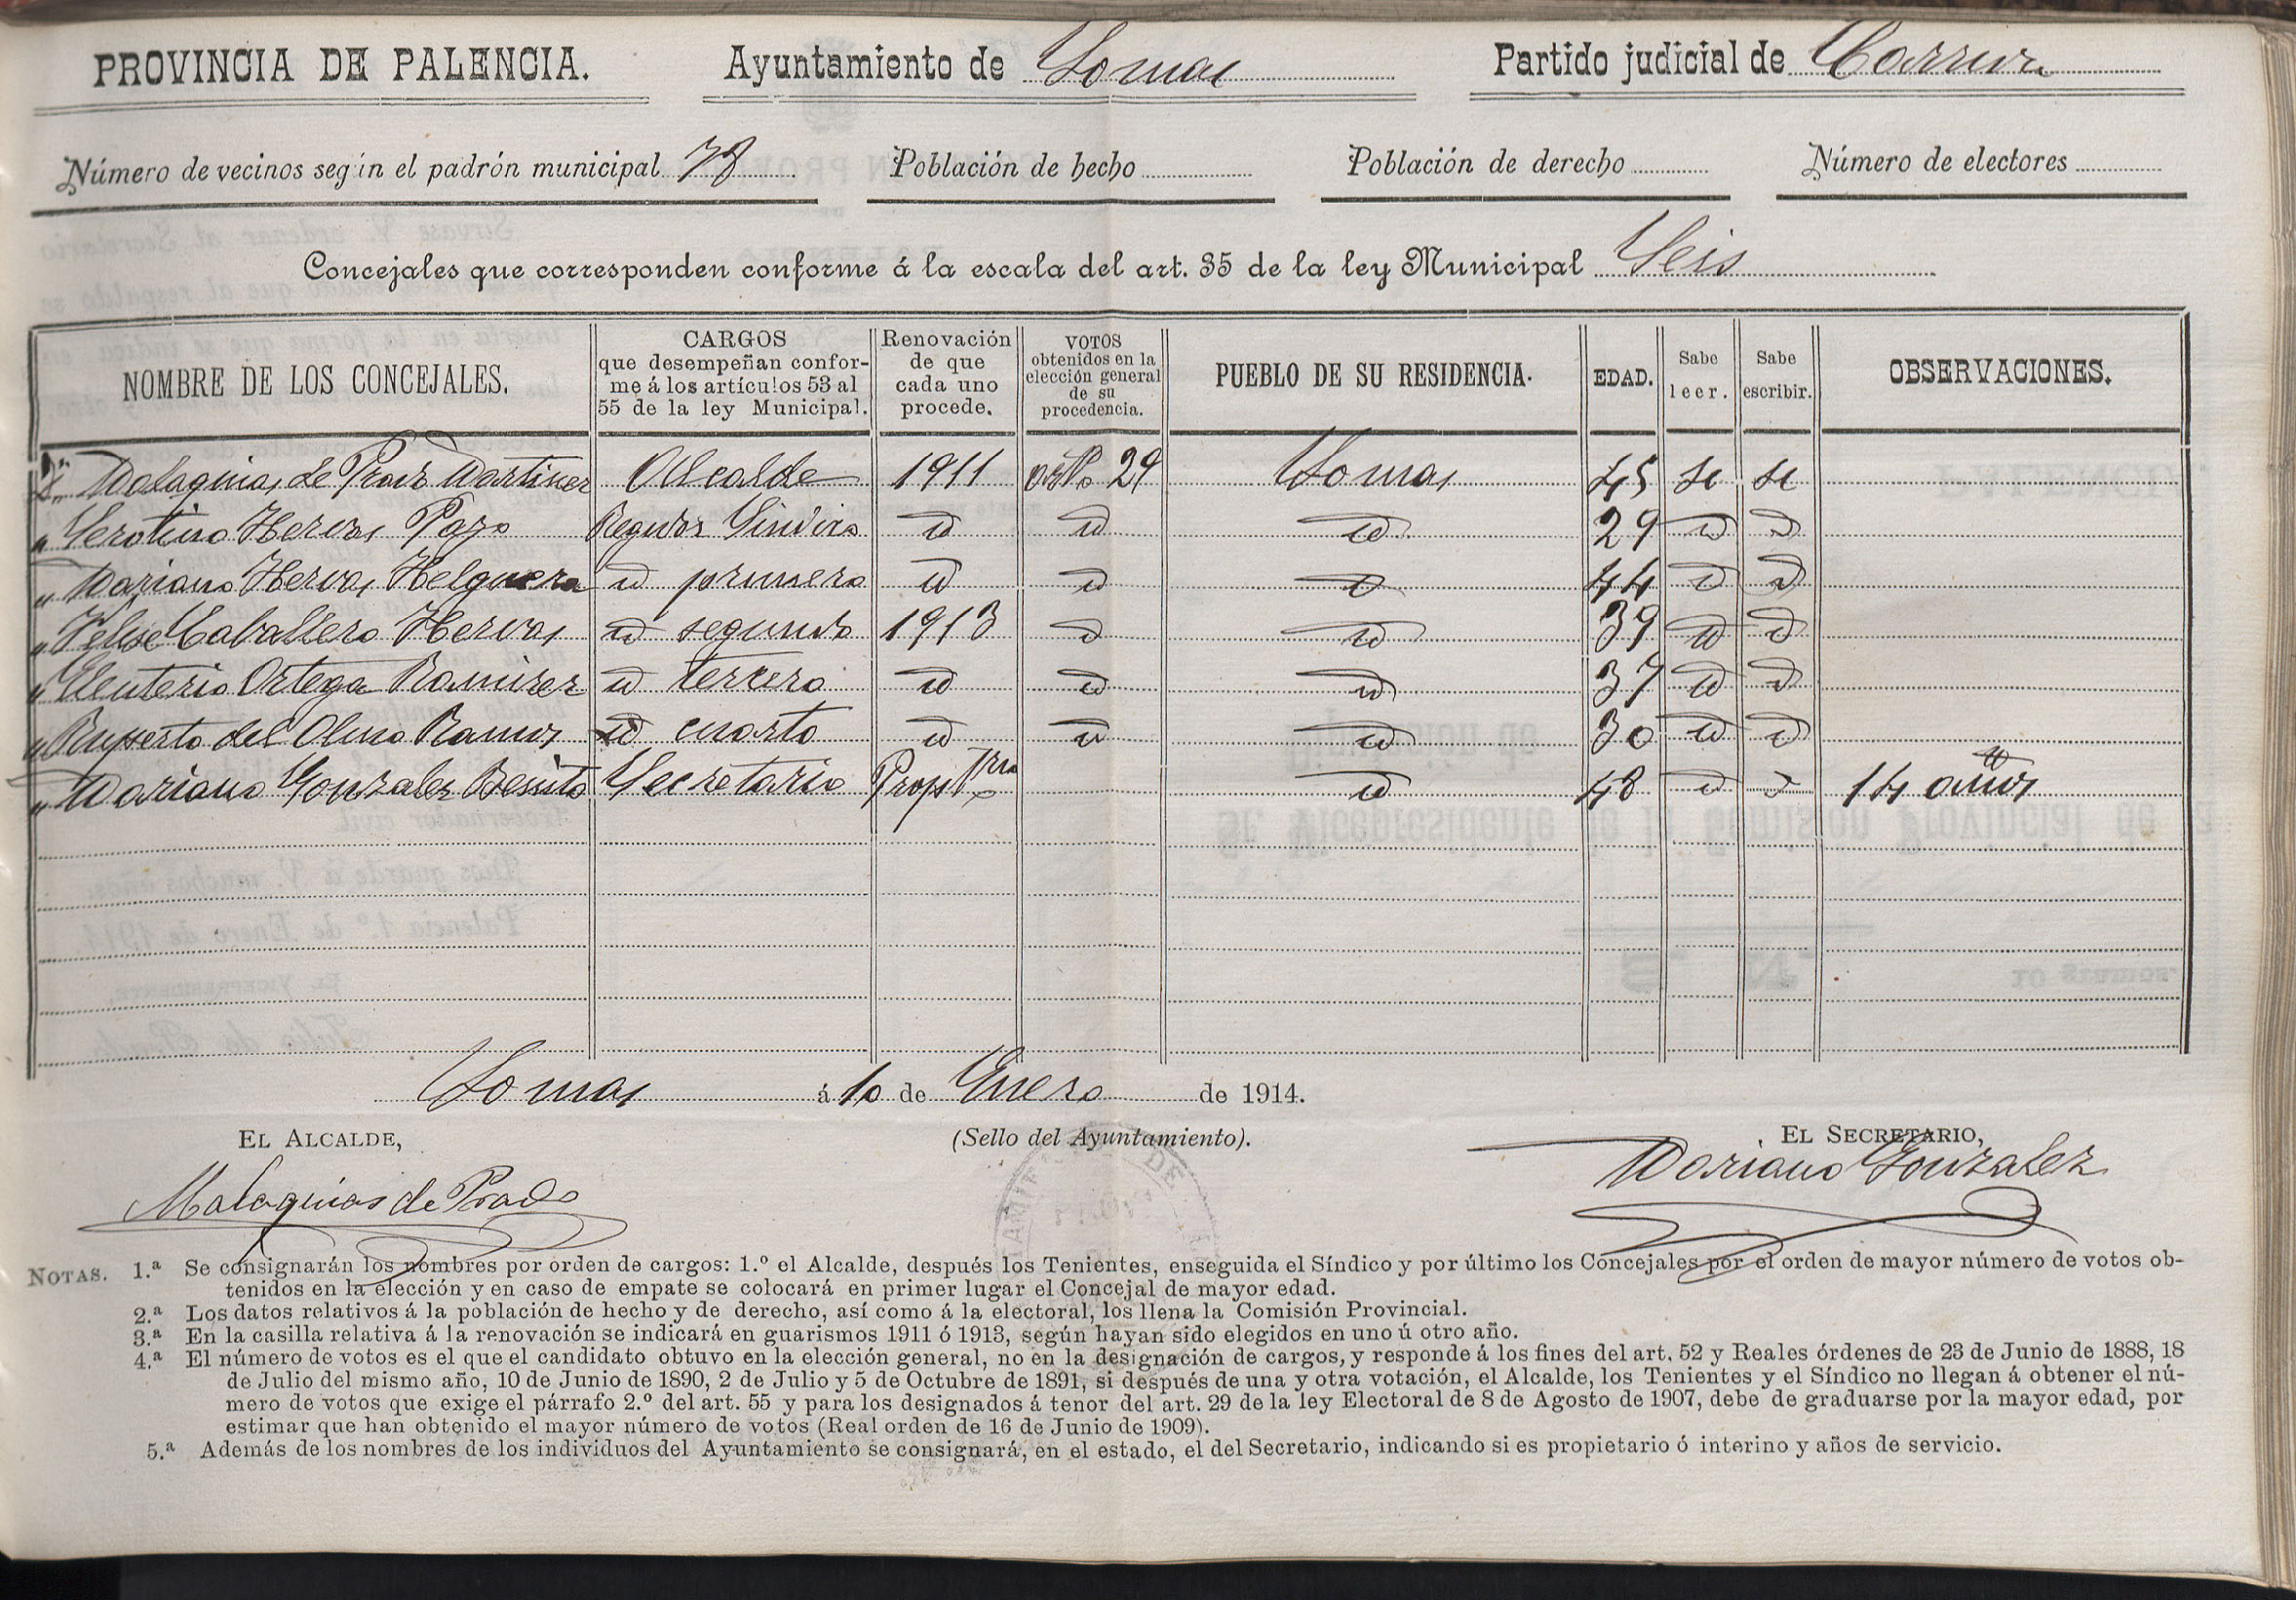 PROVINCIA DE PALENCIA. Ayuntamiento de Lomas Partido judicial de Carrion
Número de vecinos según el padrón municipal 78 Población de hecho Población de derecho Número de electores
Concejales que corresponden conforme á la escala del art. 35 de la ley Municipal Seis
NOMBRE DE LOS CONCEJALES. CARGOS que desempeñan conforme á los artículos 53 al 55 de la ley Municipal. Renovación de que cada uno procede. VOTOS obtenidos en la elección general de su procedencia. PUEBLO DE SU RESIDENCIA. EDAD. Sabe leer. Sabe escribir. OBSERVACIONES.
D. Malaquias de Prado Martinez Alcalde 1911 artº 29 Lomas 45 si si
" Serotino Hervas Pozo Regidor Sindico id id id 29 id id
" Mariano Hervas Helguera id primero id id id 44 id id
" Felipe Caballero Hervas id segundo 1913 id id 39 id id
" Eleuterio Ortega Ramirez id tercero id id id 37 id id
" Ruperto del Olmo Ramos id cuarto id id id 30 id id
" Mariano Gonzalez Benito Secretario id 48 id id 14 años
Lomas á 10 de Enero de 1914.
EL ALCALDE, (Sello del Ayuntamiento). EL SECRETARIO,
Malaquias de Prado Mariano Gonzalez
NOTAS. 1.ª Se consignarán los nombres por orden de cargos: 1.º el Alcalde, después los Tenientes, enseguida el Síndico y por último los Concejales por el orden de mayor número de votos ob-
tenidos en la elección y en caso de empate se colocará en primer lugar el Concejal de mayor edad.
2.ª Los datos relativos á la población de hecho y de derecho, así como á la electoral, los llena la Comisión Provincial.
3.ª En la casilla relativa á la renovación se indicará en guarismos 1911 ó 1913, según hayan sido elegidos en uno ú otro año.
4.ª El número de votos es el que el candidato obtuvo en la elección general, no en la designación de cargos, y responde á los fines del art. 52 y Reales órdenes de 23 de Junio de 1888, 18
de Julio del mismo año, 10 de Junio de 1890, 2 de Julio y 5 de Octubre de 1891, si después de una y otra votación, el Alcalde, los Tenientes y el Síndico no llegan á obtener el nú-
mero de votos que exige el párrafo 2.º del art. 55 y para los designados á tenor del art. 29 de la ley Electoral de 8 de Agosto de 1907, debe de graduarse por la mayor edad, por
estimar que han obtenido el mayor número de votos (Real orden de 16 de Junio de 1909).
5.ª Además de los nombres de los individuos del Ayuntamiento se consignará, en el estado, el del Secretario, indicando si es propietario ó interino y años de servicio.